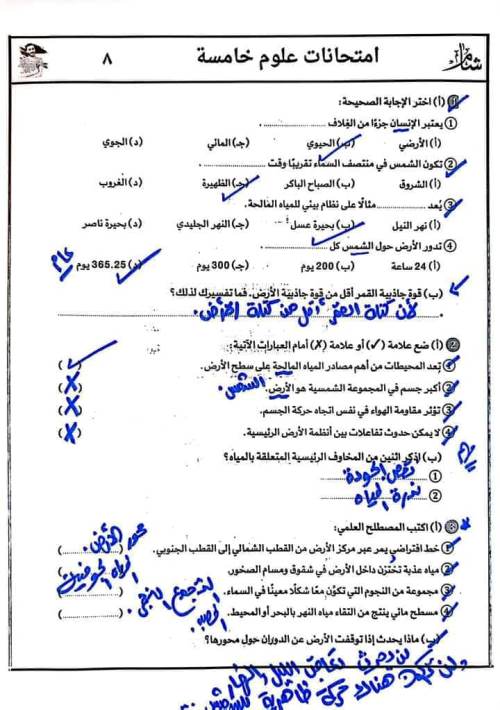 شناور
امتحانات علوم خامسة
٨
١ (أ) اختر الإجابة الصحيحة:
① يعتبر الإنسان جزءًا من الغلاف ............
(أ) الأرضي (ب) الحيوي (جـ) المائي (د) الجوي
② تكون الشمس في منتصف السماء تقريبًا وقت ............
(أ) الشروق (ب) الصباح الباكر (جـ) الظهيرة (د) الغروب
③ يُعد ............ مثالًا على نظام بيئي للمياه المالحة.
(أ) نهر النيل (ب) بحيرة عسل (جـ) النهر الجليدي (د) بحيرة ناصر
④ تدور الأرض حول الشمس كل ............
(أ) 24 ساعة (ب) 200 يوم (جـ) 300 يوم (د) 365.25 يوم
(ب) قوة جاذبية القمر أقل من قوة جاذبية الأرض. فما تفسيرك لذلك؟
لأن كتلة القمر أقل من كتلة الأرض.
٢ (أ) ضع علامة (✓) أو علامة (✗) أمام العبارات الآتية:
① تعد المحيطات من أهم مصادر المياه المالحة على سطح الأرض. (✓)
② أكبر جسم في المجموعة الشمسية هو الأرض. الشمس. (✗)
③ تؤثر مقاومة الهواء في نفس اتجاه حركة الجسم. (✗)
④ لا يمكن حدوث تفاعلات بين أنظمة الأرض الرئيسية. (✗)
(ب) اذكر اثنين من المخاوف الرئيسية المتعلقة بالمياه؟
① نقص الجودة
② ندرة المياه
٣ (أ) اكتب المصطلح العلمي:
① خط افتراضي يمر عبر مركز الأرض من القطب الشمالي إلى القطب الجنوبي. محور الأرض.
② مياه عذبة تختزن داخل الأرض في شقوق ومسام الصخور. المياه الجوفية
③ مجموعة من النجوم التي تكوِّن معًا شكلًا معينًا في السماء. التجمع النجمي
④ مسطح مائي ينتج من التقاء مياه النهر بالبحر أو المحيط. المصب.
(ب) ماذا يحدث إذا توقفت الأرض عن الدوران حول محورها؟
لن يحدث تعاقب الليل والنهار
ولن تكون هناك حركة ظاهرية للشمس